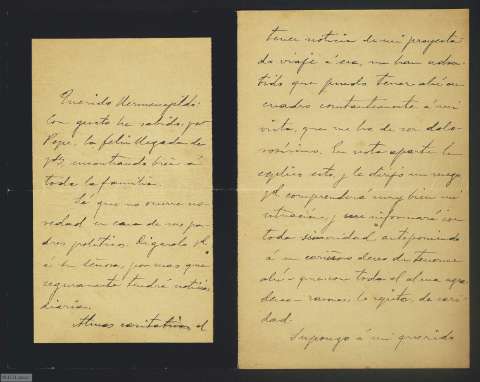 Querido Hermenegildo:
Con gusto he sabido, por
Pepe, la feliz llegada de
Vds encontrando bien á
toda la familia.
Sé que no ocurre no-
vedad en casa de mis pa-
dres políticos. Dígaselo Vd.
á su señora, por mas que
seguramente tendrá noticias
diarias.
Almas caritativas al
tener noticia de mi proyecta-
do viaje á esa, me han adver-
tido que puedo tener ahí un
cuadro constantemente á mi
vista, que me ha de ser dolo-
rosísimo. En nota aparte le
explico esto, y le dirijo un ruego
Vd. comprenderá muy bien mi
situacion, y me informará con
toda sinceridad anteponiendo
á su cariñoso deseo de tenerme
ahí que con toda el alma agra-
decemos, le repito, de
dad.
Supongo á mi querido